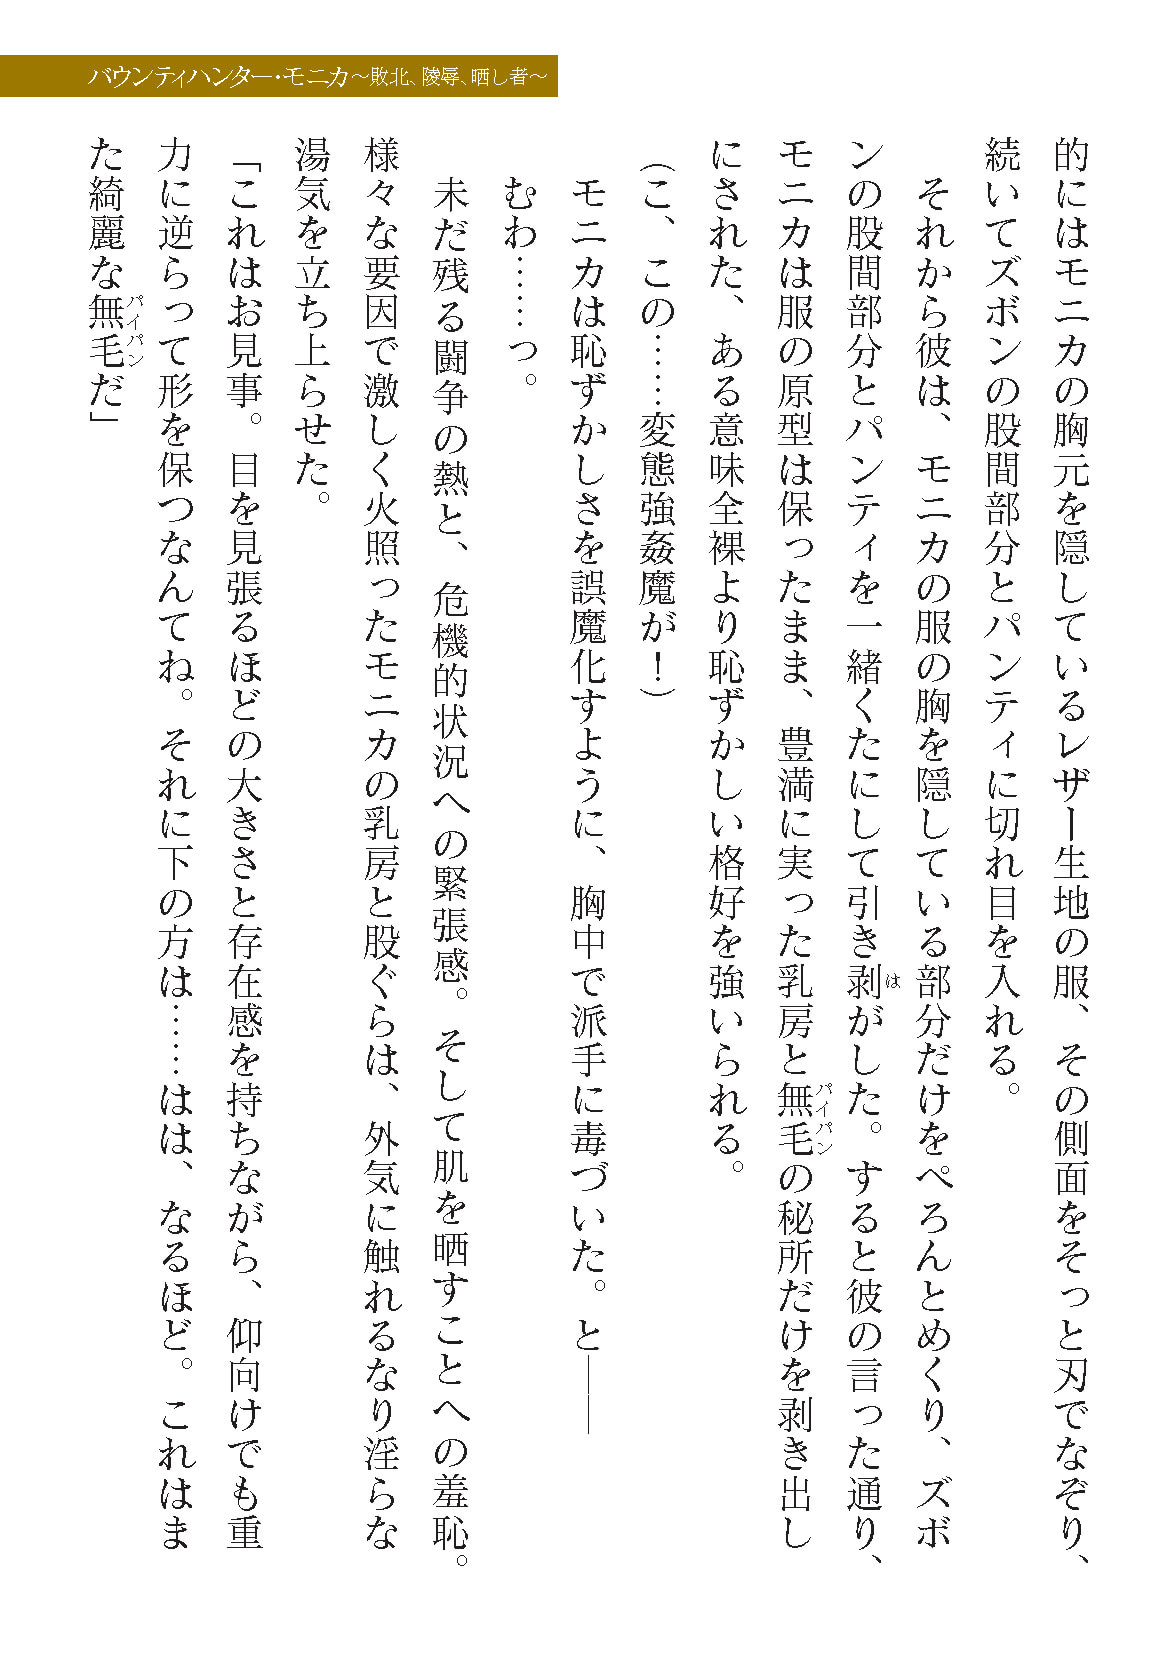 バウンティハンター・モニカ～敗北、陵辱、晒し者～
的にはモニカの胸元を隠しているレザー生地の服、その側面をそっと刃でなぞり、
続いてズボンの股間部分とパンティに切れ目を入れる。
それから彼は、モニカの服の胸を隠している部分だけをぺろんとめくり、ズボ
ンの股間部分とパンティを一緒くたにして引き剥がした。すると彼の言った通り、
モニカは服の原型は保ったまま、豊満に実った乳房と無毛の秘所だけを剥き出し
にされた、ある意味全裸より恥ずかしい格好を強いられる。
（こ、この……変態強姦魔が！）
モニカは恥ずかしさを誤魔化すように、胸中で派手に毒づいた。と――
むわ……っ。
未だ残る闘争の熱と、危機的状況への緊張感。そして肌を晒すことへの羞恥。
様々な要因で激しく火照ったモニカの乳房と股ぐらは、外気に触れるなり淫らな
湯気を立ち上らせた。
「これはお見事。目を見張るほどの大きさと存在感を持ちながら、仰向けでも重
力に逆らって形を保つなんてね。それに下の方は……はは、なるほど。これはま
た綺麗な無毛だ」
は
パイパン
パイパン